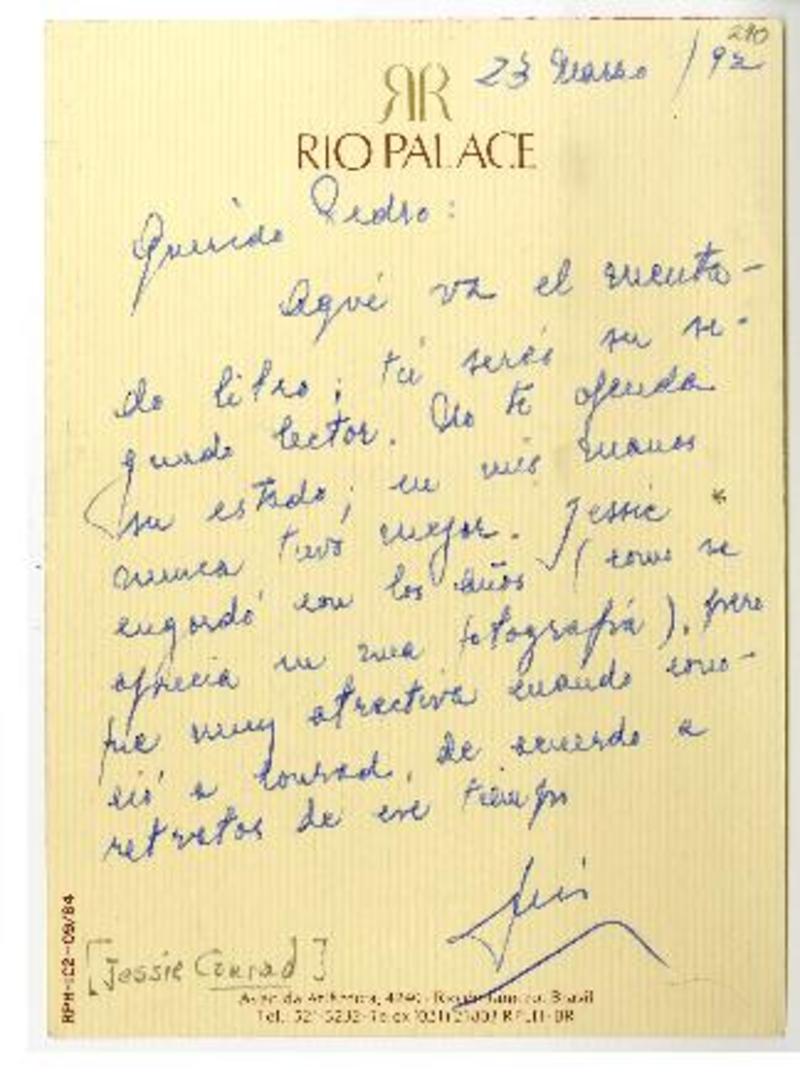 290
23 Marzo / 92
RIO PALACE
Querido Pedro:
Aquí va el menta-
do libro; tú serás su se-
gundo lector. No te ofenda
su estado; en mis manos
nunca tuvo mejor. Jessie *
engordó con los años (como se
aprecia en una fotografía), pero
fue muy atractiva cuando cono-
ció a Conrad, de acuerdo a
retratos de ese tiempo
Luis
[Jessie Conrad]
RPH-102-09/84
Avenida Atlântica, 4240 - Rio de Janeiro, Brasil
Tel.: 521-3232 - Telex (021) 21803 RPLH-BR